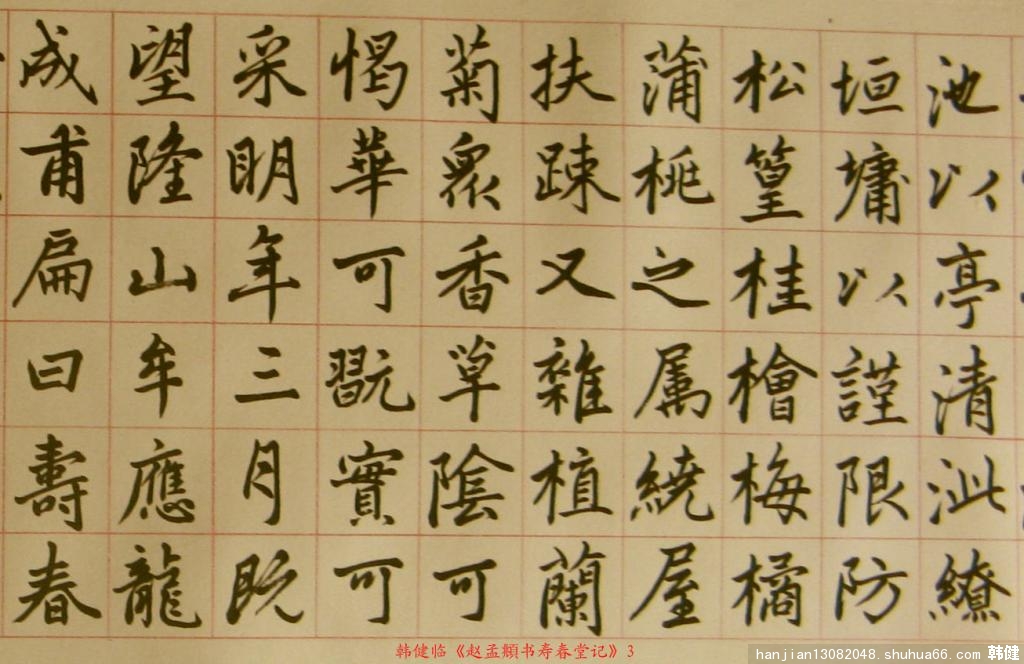 池以亭清泚繚
垣墉以謹限防
松篁桂檜梅橘
蒲桃之属繞屋
扶踈又雜植蘭
菊衆香草陰可
愒華可翫實可
采明年三月既
望隆山牟應龍
成甫扁曰壽春
韩健临《赵孟頫书寿春堂记》3
hanjian13082048.shuhua66.com 韩健